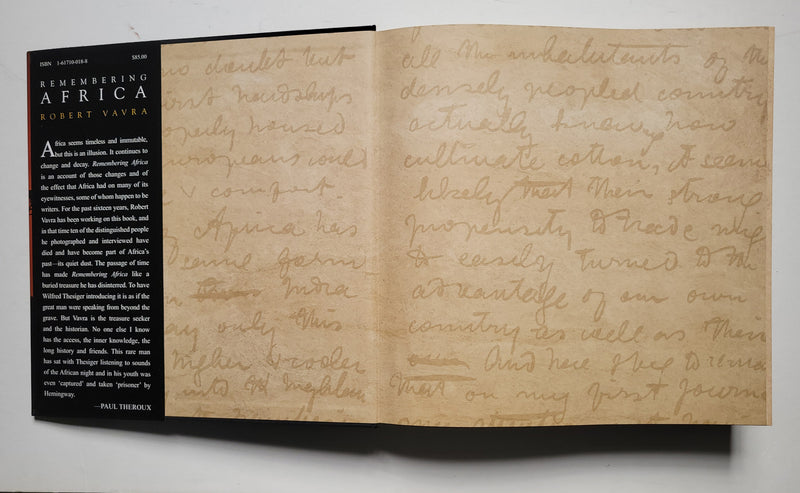 ISBN 1-61710-018-8 $85.00
REMEMBERING
AFRICA
ROBERT VAVRA
Africa seems timeless and immutable,
but this is an illusion. It continues to
change and decay. Remembering Africa
is an account of those changes and of
the effect that Africa had on many of its
eyewitnesses, some of whom happen to be
writers. For the past sixteen years, Robert
Vavra has been working on this book, and
in that time ten of the distinguished people
he photographed and interviewed have
died and have become part of Africa's
past—its quiet dust. The passage of time
has made Remembering Africa like a
buried treasure he has disinterred. To have
Wilfred Thesiger introducing it is as if the
great man were speaking from beyond the
grave. But Vavra is the treasure seeker
and the historian. No one else I know
has the access, the inner knowledge, the
long history and friends. This rare man
has sat with Thesiger listening to sounds
of the African night and in his youth was
even 'captured' and taken 'prisoner' by
Hemingway.
—PAUL THEROUX
no doubt but
hardships
housed
comfort
Africa has
India
only this
higher
all the inhabitants of the
densely peopled country
actually know how
cultivate cotton, it seems
likely that their strong
propensity to trade may
be easily turned to the
advantage of our own
country as well as their
own And here I beg to
that on my first journ